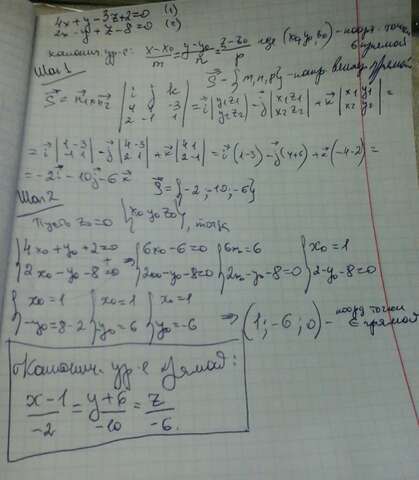 4x+y-3z+2=0 (1)
2x-y+z-8=0 (2)
канонич. ур-е: x-x₀/m = y-y₀/n = z-z₀/p, где (x₀,y₀,z₀) - коорд. точки
Є прямой
Шаг 1
S⃗ - {m,n,p} - направ. вектор прямой
S⃗ = n₁×n₂ |i j k; 4 1 -3; 2 -1 1| = i⃗ |y₁ z₁; y₂ z₂| - j⃗ |x₁ z₁; x₂ z₂| + k⃗ |x₁ y₁; x₂ y₂| =
= i⃗ |1 -3; -1 1| - j⃗ |4 -3; 2 1| + k⃗ |4 1; 2 -1| = i⃗(1-3) - j⃗(4+6) + k⃗(-4-2) =
= -2i⃗ - 10j⃗ - 6k⃗ S⃗ = {-2, -10, -6}
Шаг 2
Пусть z₀=0 {x₀ y₀ z₀}, тогда
{4x₀+y₀+2=0 {6x₀-6=0 {6x₀=6 {x₀=1
{2x₀-y₀-8=0 + ⇒ {2x₀-y₀-8=0 {2x₀-y₀-8=0 {2-y₀-8=0
{x₀=1 {x₀=1 {x₀=1
{-y₀=8-2 {y₀=6 {y₀=-6 ⇒ (1; -6; 0) - коорд точки
Є прямой
Канонич. ур-е прямой:
x-1/-2 = y+6/-10 = z/-6